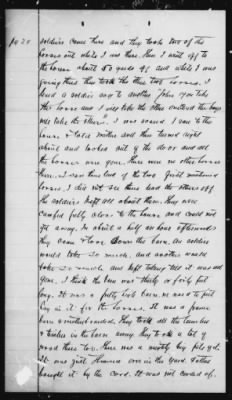 No 20
soldiers came here and they took two of the
horses out while I was there. Then I went off to
the house about 50 yards off and while I was
going there they took the other two horses. I
heard a soldier say to another John you take
this horse and I will take the other and said the boys
will take the others". I was scared I ran to the
house & told mother and then turned right
about and looked out of the door and all
the horses were gone. There were no other horses
there. I saw them lead of the two first mentioned
horses. I did not see them lead the others off
the soldiers kept all about them. They were
camped fully close to the house and could not
get away. In about a half an hour afterwards
they came & tore down the barn. One soldier
would take so much and another would
take so much and kept taking till it was all
gone. I think the barn was thirty or forty feet
long. It was a pretty high barn we used to put
hay in it for the horses. It was a frame
barn & weatherboarded. They took all the lumber
& timber in the barn away. They took a lot of
wood there too. There was a mighty big pile of it.
It was just thrown over in the yard. Father
bought it by the cord. It was not corded up.